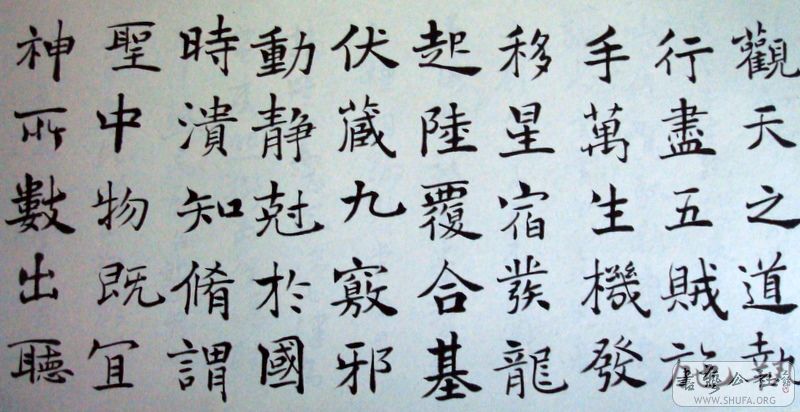 觀天之道執
行盡五賊於
手萬生機發
移星宿發龍
起陸覆合基
伏藏九竅邪
動靜尅於國
時潰知脩謂
聖中物既冝
神所數出聽
書藝公社
WWW.SHUFA.ORG